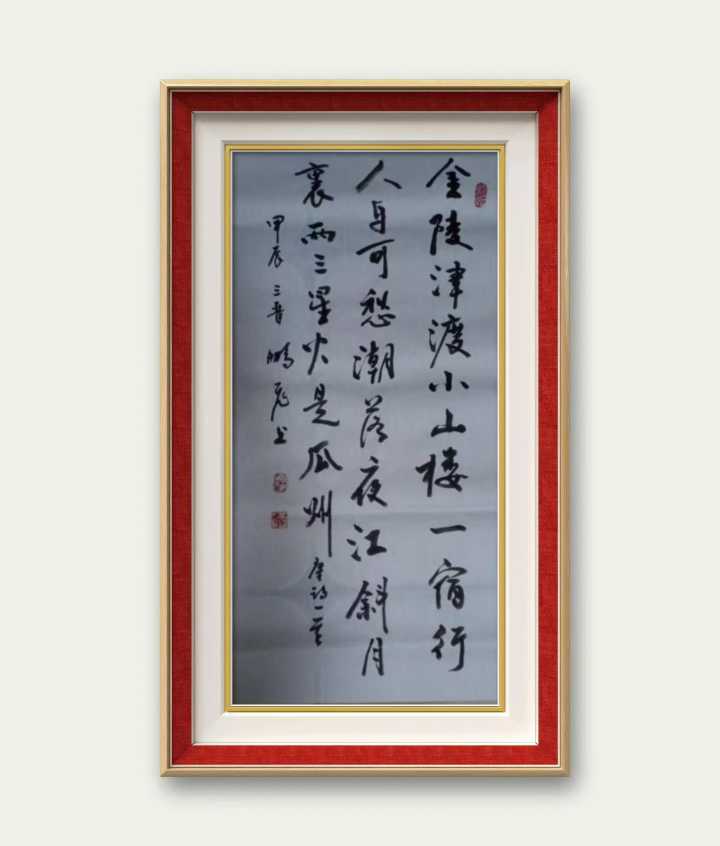 金陵津渡小山楼一宿行
人自可愁潮落夜江斜月
裏两三星火是瓜州 唐诗一首
甲辰 三晋 鹏飞